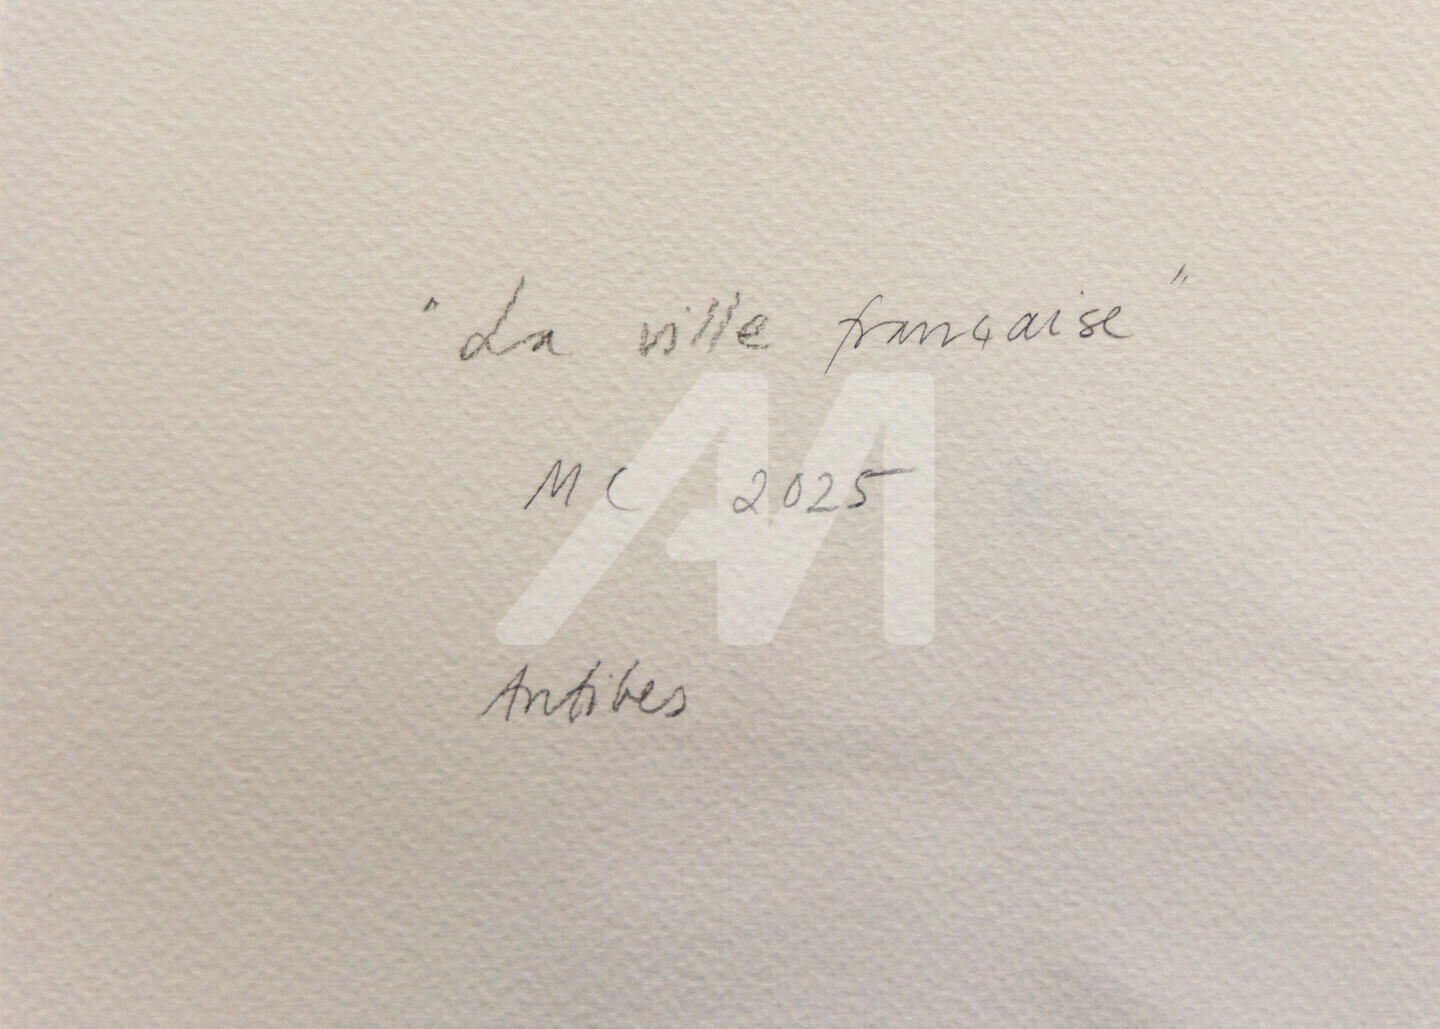 "La ville française"
MC 2025
Antibes